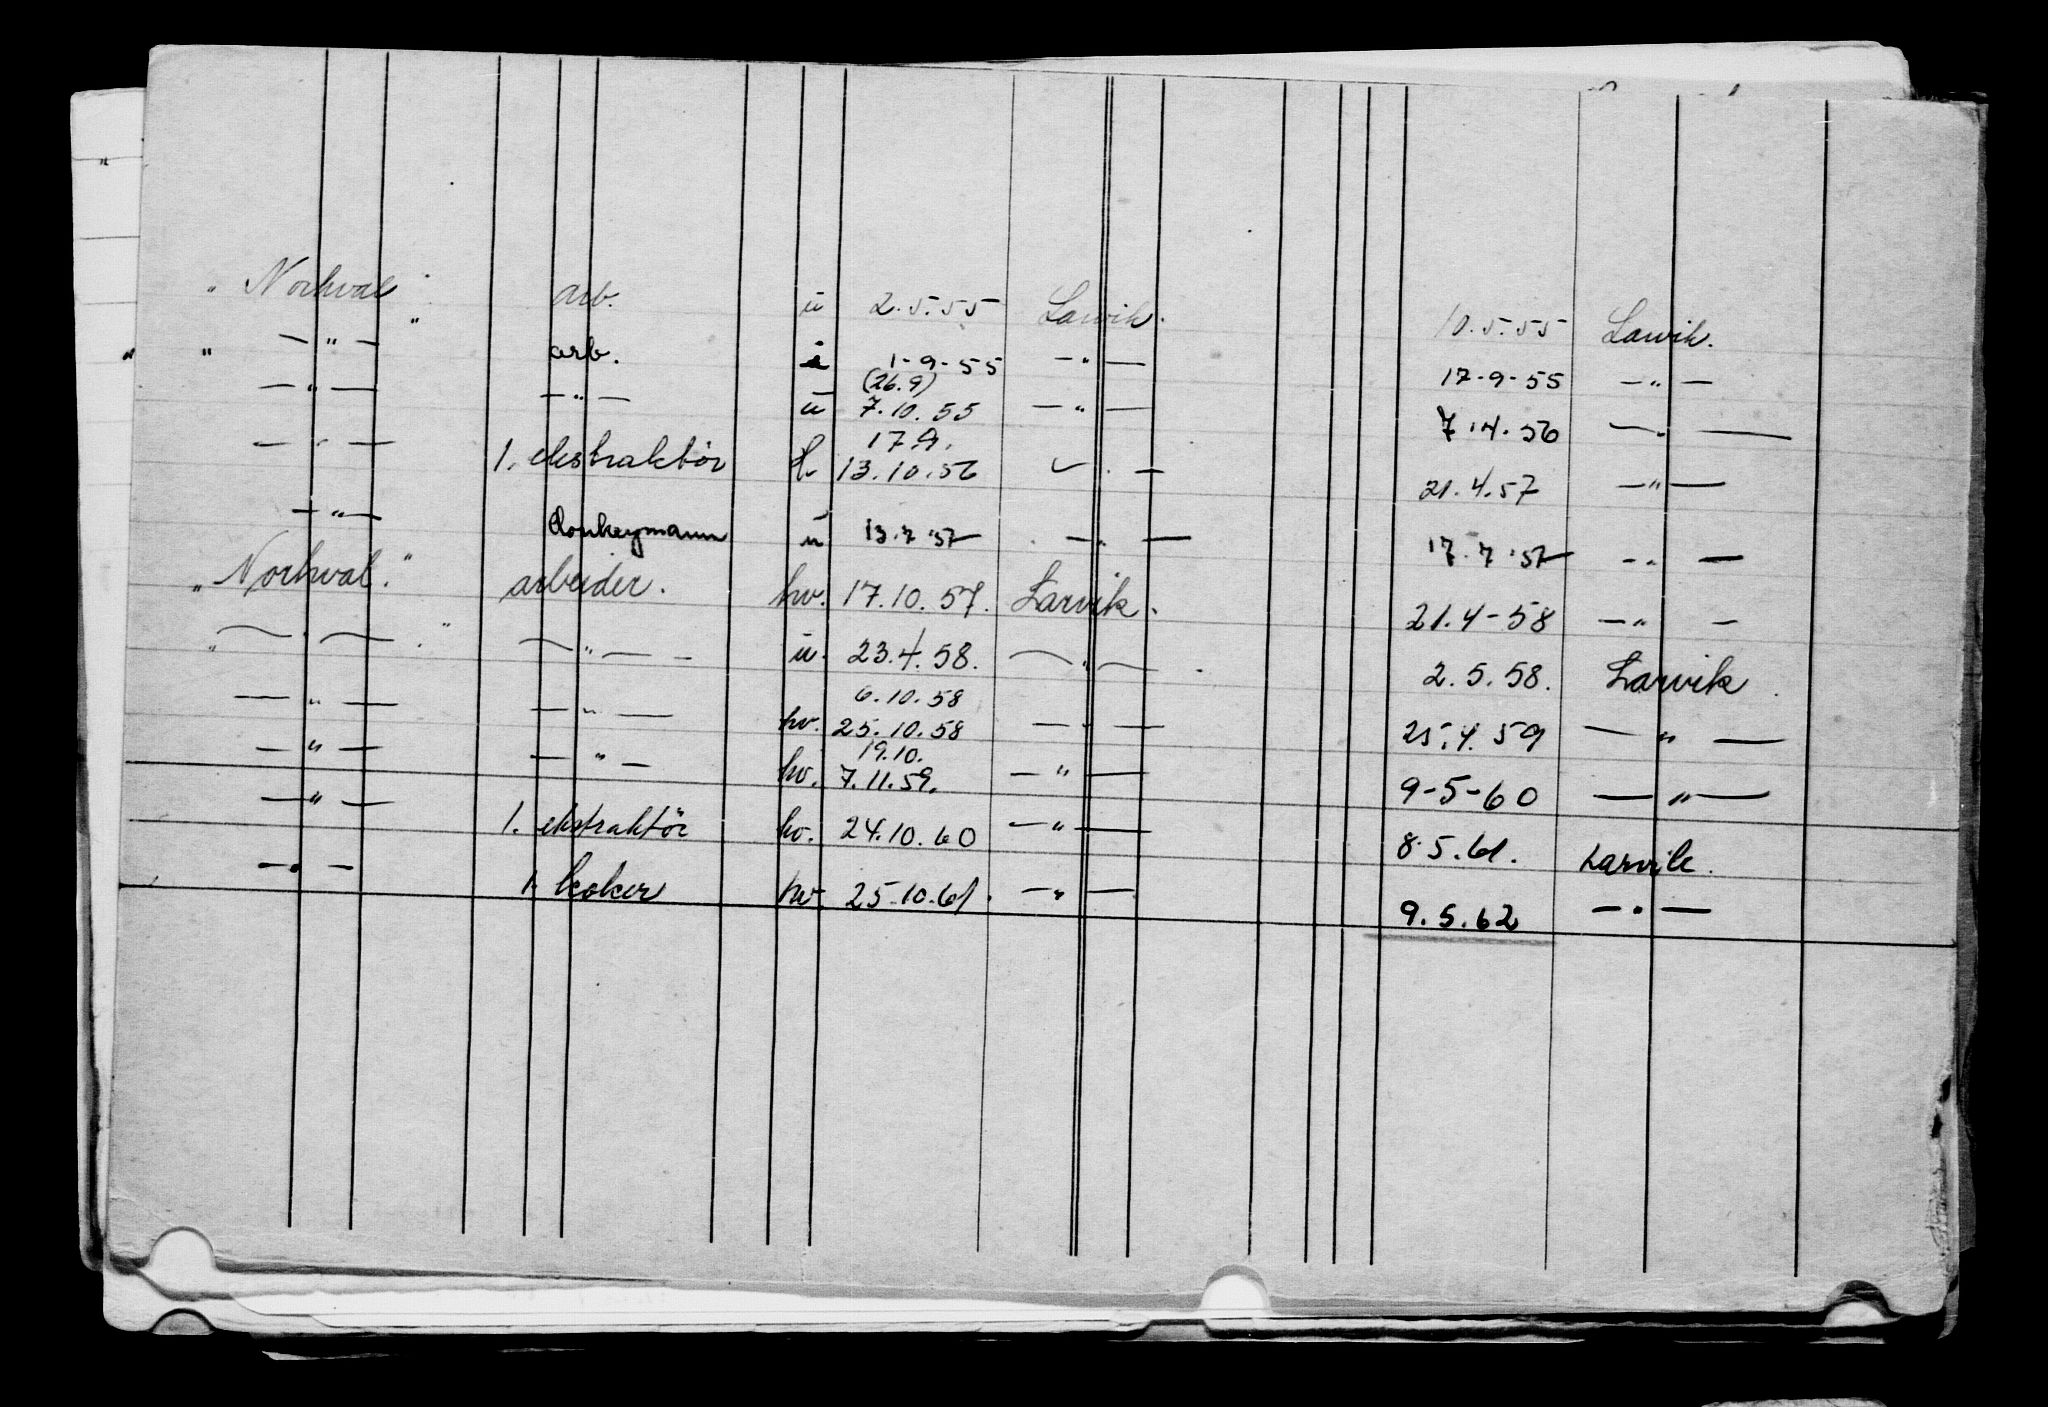 "Norhval" arb. u 2.5.55 Larvik. 10.5.55 Larvik.
" — " — " arb. 1-9-55 — " — 17-9-55 — " —
(26.9)
— " — — " — u 7.10.55 — " — 7.4.56 — " —
17.9.
— " — 1. ekstraktör 13.10.56 — " — 21.4.57 — " —
— " — donkeymann u 13.7.57 — " — 17.7.57 — " —
"Norhval." arbeider. hv. 17.10.57. Larvik. 21.4-58 — " —
" — " — " — " — u. 23.4.58. — " — 2.5.58. Larvik.
6.10.58
— " — — " — hv. 25.10.58 — " — 25.4.59 — " —
19.10.
— " — — " — hv. 7.11.59. — " — 9-5-60 — " —
— " — 1. ekstraktör hv. 24.10.60 — " — 8.5.61. Larvik.
— " — 1. koker hv. 25.10.61. — " — 9.5.62 — " —